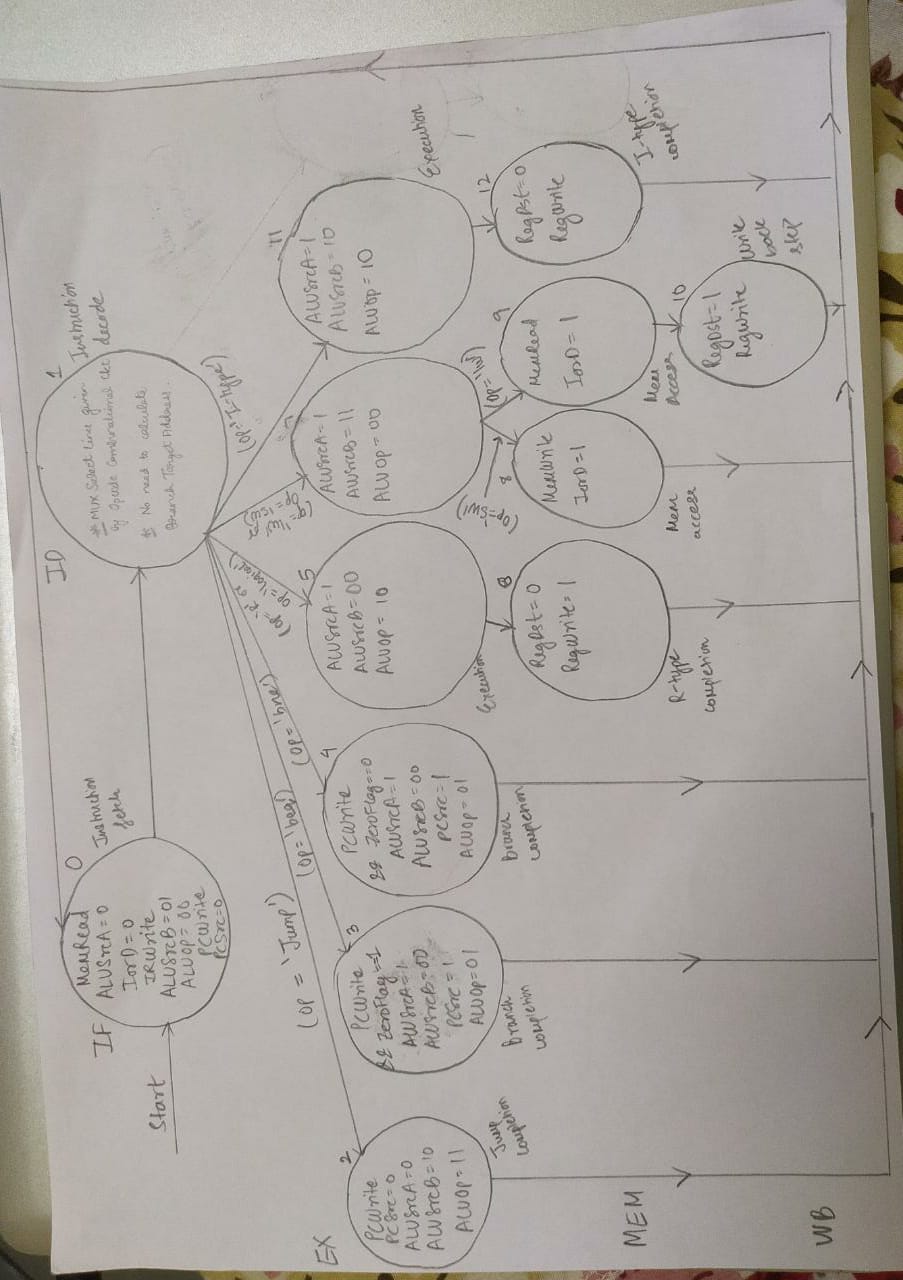 IF
Start
0
Instruction
fetch
MemRead
ALUSrcA = 0
IorD = 0
IRWrite
ALUSrcB = 01
ALUOP = 00
PCWrite
PCSrc=0
ID
1
Instruction
decode
# MUX Select Line given
by Opcode Combinational Ckt
No need to calculate
Branch Target Address.
(OP = 'Jump')
(OP='beq')
(OP='bne')
(OP='I-type')
EX
2
PCWrite
PCSrc=0
ALUSrcA=0
ALUSrcB=10
ALUOP=11
Jump
completion
3
PCWrite
&& ZeroFlag==1
ALUSrcA=1
ALUSrcB=00
PCSrc=1
ALUOP=01
Branch
completion
4
PCWrite
&& ZeroFlag==0
ALUSrcA=1
ALUSrcB=00
PCSrc=1
ALUOP=01
Branch
completion
5
ALUSrcA=1
ALUSrcB=00
ALUOP=10
Execution
ALUSrcA=1
ALUSrcB=11
ALUOP=00
11
ALUSrcA=1
ALUSrcB=10
ALUOP=10
Execution
(OP='SW')
(OP='lw')
MEM
RegDst=0
RegWrite=1
R-type
completion
8
MemWrite
IorD=1
Mem
access
9
MemRead
IorD=1
Mem
Access
12
RegDst=0
RegWrite
I-type
completion
WB
10
RegDst=1
RegWrite
Write
back
step